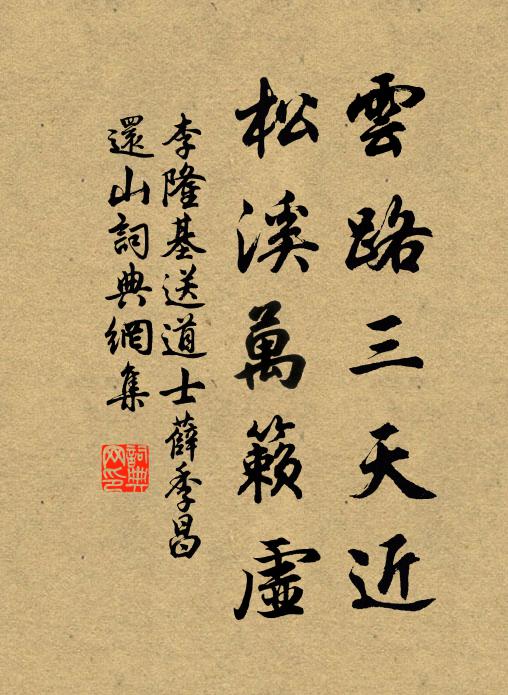 雲路三天近
松溪萬籟虛
李隆基送道士薛季昌
還山詞典網集
詞典網印